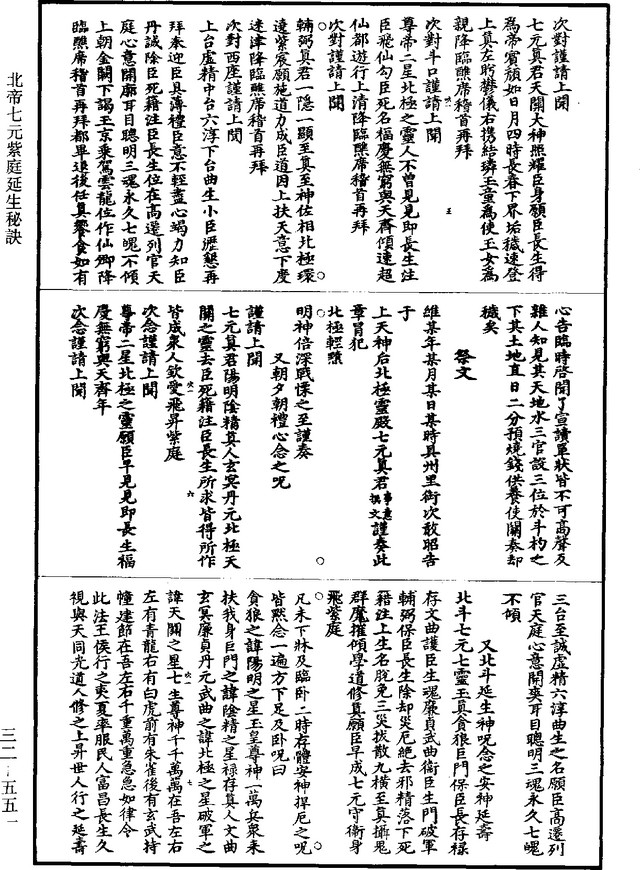 次對謹請上聞
七元真君天關大神照耀臣身願臣長生得
為帝賓顏如日月四時長春下界垢穢速登
上真左盼攀儀右攜結璘玉童為使玉女為
親降臨醮席稽首再拜
次對斗口謹請上聞
尊帝二星北極之靈人不曾見見即長生注
臣飛仙勾臣死名福慶無窮與天齊傾速超
仙都遊行上清降臨醮席稽首再拜
次對謹請上聞
輔弼真君一隱一顯至真至神佐相北極環
遶紫宸願施道力成臣道因上扶天意下度
迷津降臨醮席稽首再拜
次對西座謹請上聞
上台虛精中台六淳下台曲生小臣瀝懇再
拜奉迎臣具薄禮臣意不輕盡心竭力知臣
丹誠除臣死籍注臣長生位在高遷列官天
庭心意開廓耳目聰明三魂永久七魄不傾
上朝金闕下謁玉京乘駕雲龍位作仙卿降
臨醮席稽首再拜都畢退後任真饗食如有
心告臨時啓聞了宣讀單狀皆不可高聲及
雜人知見其天地水三官設三位於斗杓之
下其土地直日二分預燒錢供養使關奏却
穢矣
祭文
維某年某月某日某時具州里銜次敢昭告
于
上天神后北極靈殿七元真君事意撰文謹奏此
章冒犯
北極輕黷
明神倍深戰慄之至謹奏
又朝夕朝禮心念之呪
謹請上聞
七元真君陽明陰精真人玄冥丹元北極天
關之靈去臣死籍注臣長生所求皆得所作
皆成衆人欽愛飛昇紫庭
次念謹請上聞
尊帝二星北極之靈願臣早見見即長生福
慶無窮與天齊年
次念謹請上聞
三台至誠虛精六淳曲生之名願臣高遷列
官天庭心意開爽耳目聰明三魂永久七魄
不傾
又北斗延生神呪念之安神延壽
北斗七元七靈玉真貪狼巨門保臣長存祿
存文曲護臣生魂廉貞武曲衞臣生門破軍
輔弼保臣長生除却災厄絕去邪精落下死
籍注上生名脫免三災拔散九橫至真攝鬼
群魔摧傾學道修真願臣早成七元守衞身
飛紫庭
凡未下牀及臨卧二時存體安神捍厄之呪
皆默念一遍方下足及卧呪曰
貪狼之諱陽明之星玉皇尊神一萬兵衆來
扶我身巨門之諱陰精之星祿存真人文曲
玄冥廉貞丹元武曲之諱北極之星破軍之
諱天關之星七生尊神千千萬萬在吾左右
左有青龍右有白虎前有朱雀後有玄武持
幢建節在吾左右千重萬重急急如律令
此法王侯行之夷夏率服民人富昌長生久
視與天同光道人修之上昇世人行之延壽
北帝七元紫庭延生秘訣
三二-五五一